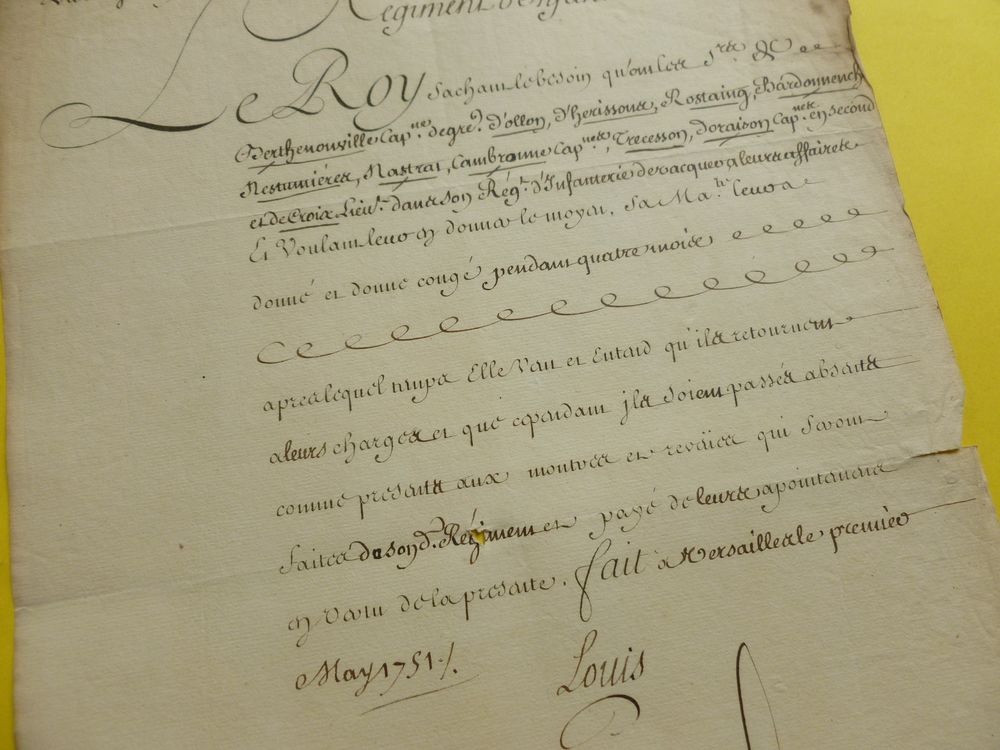 Régiment d'Infan
Le Roy sachant le besoin qu'ont les Srs. de
Berthenonville Capne. de gre.rs d'ollon, d'herissons, Rostaing, Bardonnench
Nestumiéres, Nastrat, Cambronne Capnes, Trecesson, doraison Capnes. en second
et de Croix Lieut. dans son Régt. d'Infanterie de vacquer a leurs affaires
Et Voulant leur en donner le moyen, Sa Maté. leur a
donné et donne congé pendant quatre mois
apres lequel temps Elle Veut et Entend qu'ils retournent
a leurs charges et que cependant ils soient passés absents
comme presents aux montres et reveües qui seront
faites de son d. Régiment et payé de leurs apointements
en vertu de la presente. fait a Versailles le premier
May 1751./.
Louis